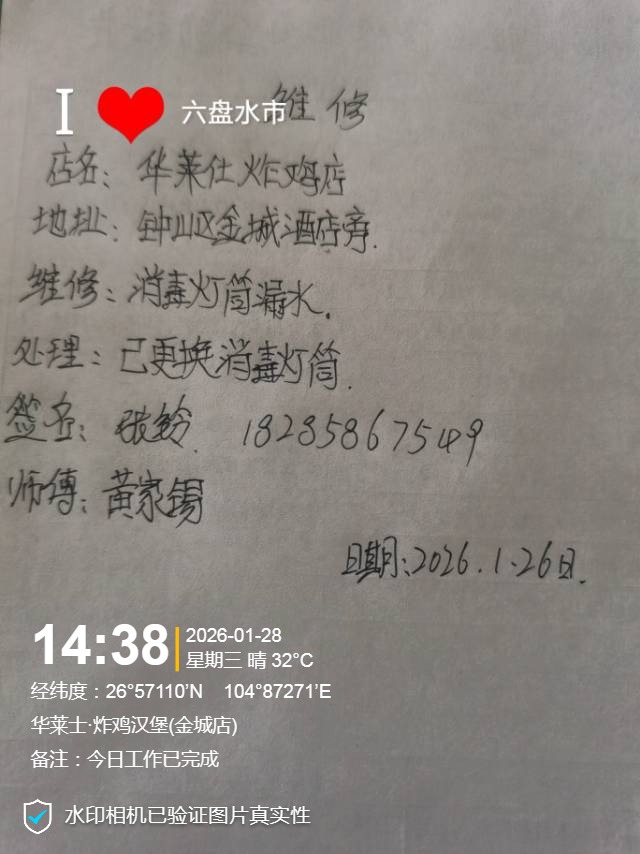 I ❤ 六盘水市
维修
店名：华莱仕炸鸡店
地址：钟山区金城酒店旁.
维修：消毒灯筒漏水.
处理：已更换消毒灯筒.
签名：张铃. 18285867549
师傅：黄家锡
日期：2026.1.26日.
14:38
2026-01-28
星期三 晴 32°C
经纬度：26°57110′N 104°87271′E
华莱士·炸鸡汉堡(金城店)
备注：今日工作已完成
水印相机已验证图片真实性